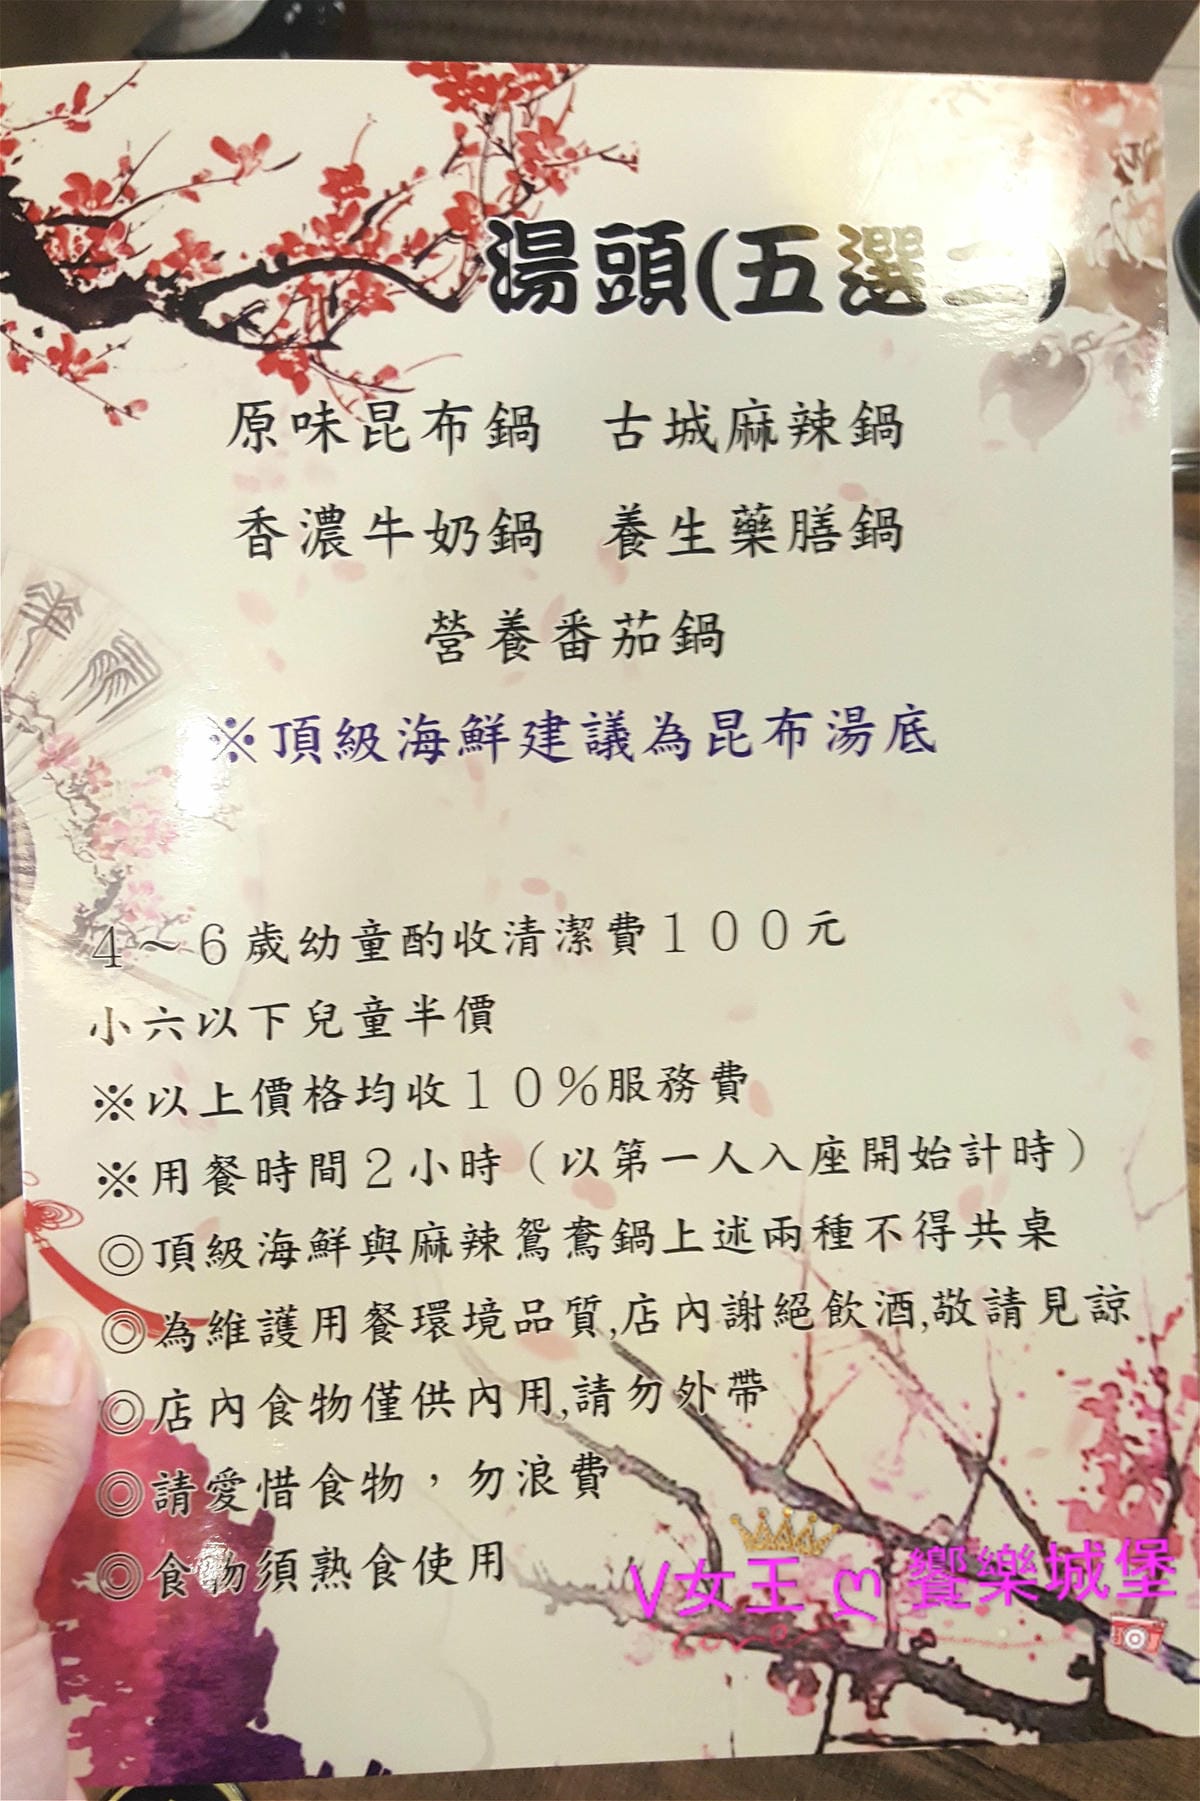 湯頭(五選二)
原味昆布鍋 古城麻辣鍋
香濃牛奶鍋 養生藥膳鍋
營養番茄鍋
※頂級海鮮建議為昆布湯底
4～6歲幼童酌收清潔費100元
小六以下兒童半價
※以上價格均收10%服務費
※用餐時間2小時（以第一人入座開始計時）
◎頂級海鮮與麻辣鴛鴦鍋上述兩種不得共桌
◎為維護用餐環境品質,店內謝絕飲酒,敬請見諒
◎店內食物僅供內用,請勿外帶
◎請愛惜食物，勿浪費
◎食物須熟食使用
V女王 ღ 饗樂城堡
Love